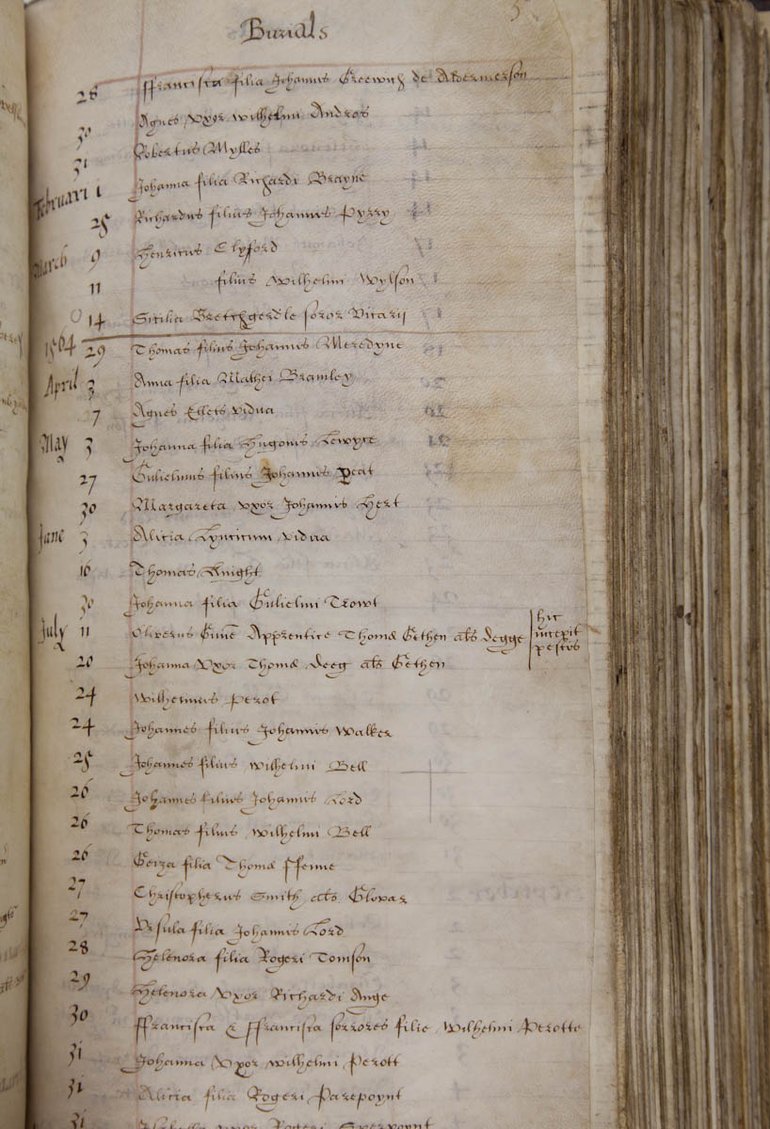 Burials
28 ffrancisca filia Johannis Greewich de Aldermerson
30 Agnes vxor wilhelmi Andros
31 Robertus Mylles
Februari 1 Johanna filia Richardi Brayne
25 Richardus filius Johannis Pyrry
March 9 Henricus Clyfford
11 filius Wilhelmi Wylson
14 Sicilia Bretchgerdle soror Vicarij
1564 29 Thomas filius Johannis Meredyne
April 3 Anna filia Mathei Bramley
7 Agnes Ellets vidua
May 3 Johanna filia Hugonis
27 Gulielmus filius Johannis peat
30 Margareta vxor Johannis Hert
June 3 Alicia vidua
16 Thomas Knight
30 Johanna filia Gulielmi Trowt
July 11 Oliverus Gune Apprentice Thomæ Gethen als degge hic
incepit
pestis
20 Johanna vxor Thomæ deeg als Gethen
24 Wilhelmus Perot
24 Johannes filius Johannis walker
25 Johannes filius wilhelmi Bell
26 Johannes filius Johannis Lord
26 Thomas filius wilhelmi Bell
26 filia Thomæ ffenne
27 Christopherus Smith als Glovar
27 Vrsula filia Johannis Lord
28 Helenora filia Rogeri Tomson
29 Helenora vxor Richardi Ange
30 ffrancisca & ffrancisca sorrores filie Wilhelmi Perotte
31 Johanna vxor wilhelmi Perott
31 Alicia filia Rogeri Parepoynt
31 vxor Rogeri